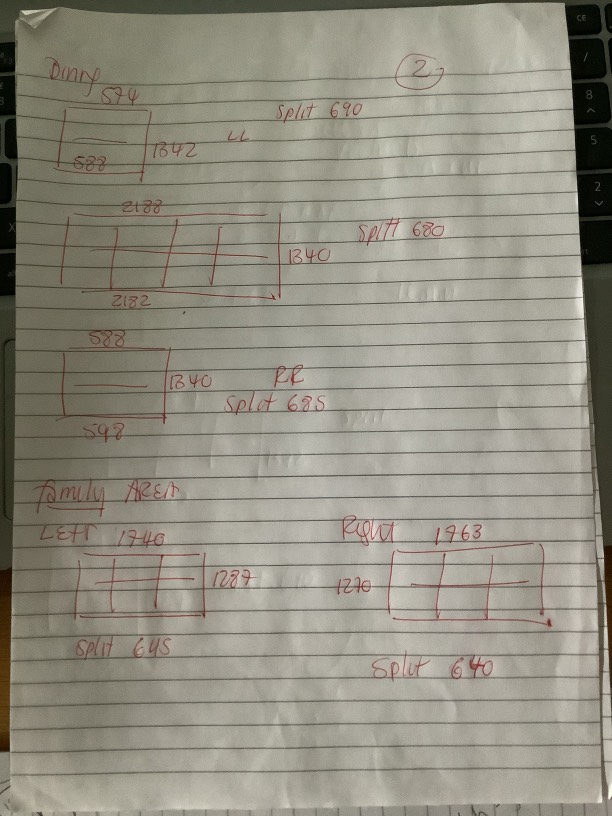 Dinny
2
574
Split 690
588
1342
LL
2188
Split 680
1340
2182
588
1340
RR
Split 685
598
Family AREA
LEFT
1740
Right
1763
1287
1270
Split 645
Split 640